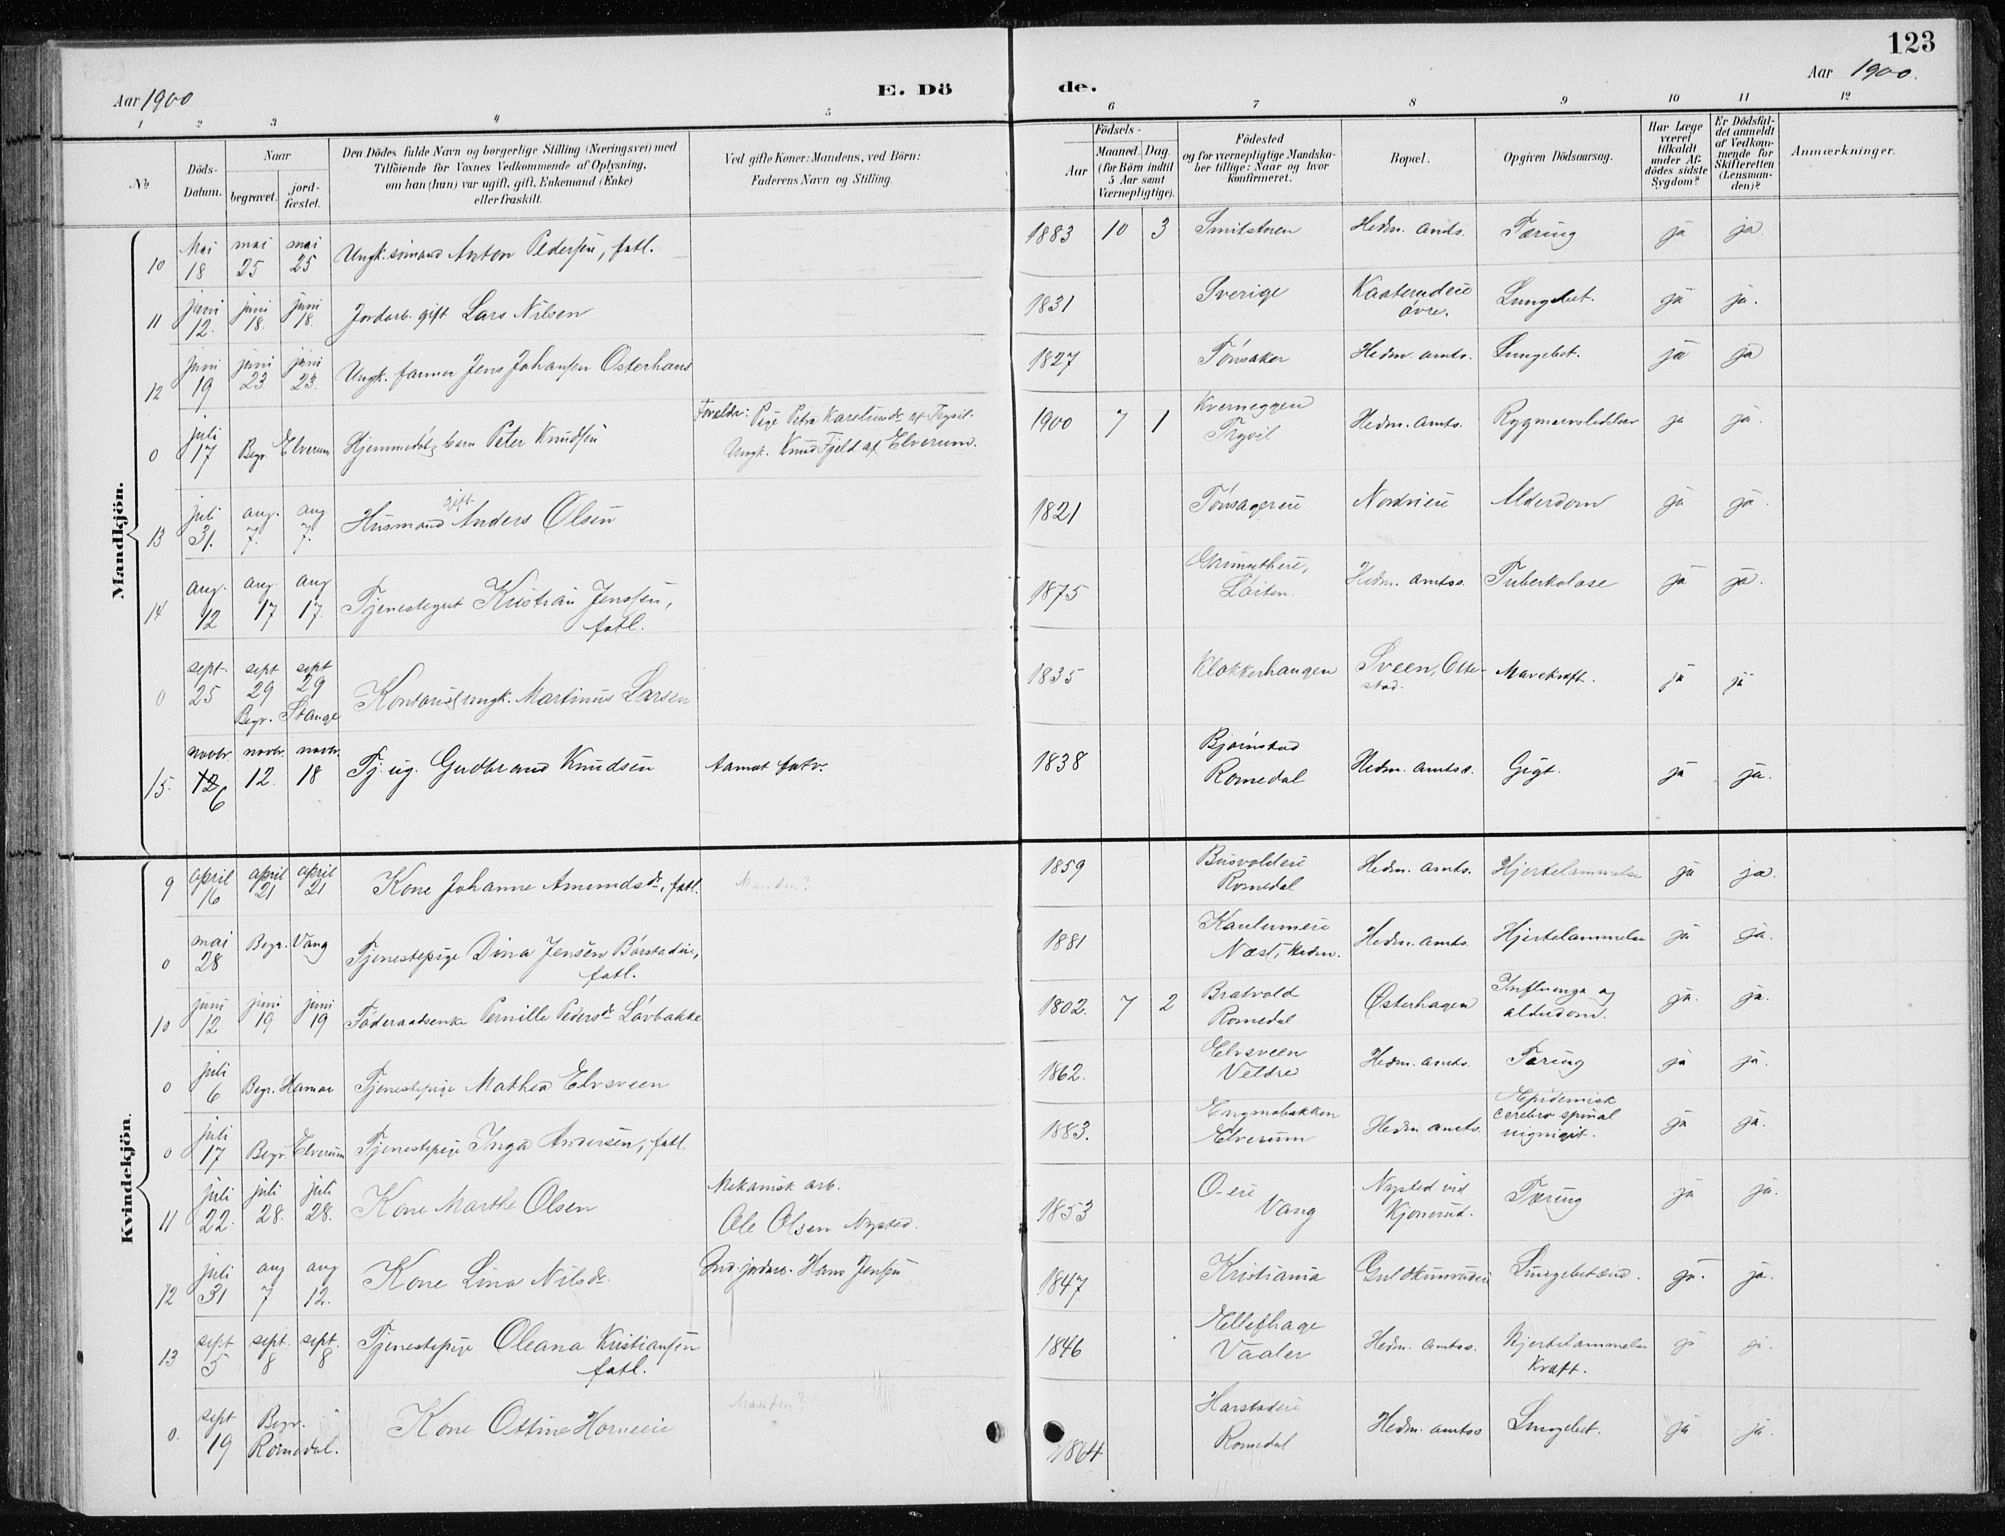 123
Aar 1900
E. Döde.
Aar 1900.
1 2 3 4 5 6 7 8 9 10 11 12
No
Döds-Datum.
Naar
begravet.
jordfæstet.
Den Dödes fulde Navn og borgerlige Stilling (Næringsvei) med
Tilföiende for Voxnes Vedkommende af Oplysning,
om han (hun) var ugift, gift, Enkemand (Enke)
eller fraskilt.
Ved gifte Koner: Mandens, ved Börn:
Faderens Navn og Stilling.
Födsels-
Aar
Maaned. Dag.
(for Börn indtil
5 Aar samt
Værnepligtige).
Födested
og for værnepligtige Mandskaber tillige: Naar og hvor
konfirmeret.
Bopæl.
Opgiven Dödsaarsag.
Har Læge
været
tilkaldt
under Afdödes sidste
Sygdom?
Er Dödsfaldet anmeldt
af Vedkommende for
Skifteretten
(Lensmanden)?
Anmærkninger.
Mandkjön.
10 Mai 18 mai 25 mai 25 Ungk. sömand Anton Pedersen, fatl. 1883 10 3 Smitstuen Hedm. amts. Tæring ja ja.
11 juni 12. juni 18. juni 18. Jordarb. gift Lars Nilsen 1831 Sverige övre. Lungebet. ja ja.
12 juni 19 juni 23 juni 23. Ungk. farmer Jens Johansen Osterhaus 1827 Tönsaker Hedm. amts. Lungebet. ja ja
0 juli 17 Begr. Elverum Hjemmedöbt barn Peter Knudsen Forældre: Pige Petra Karelusdr. af Trysil. Ungk. Knud Fjeld af Elverum. 1900 7 1 Kverneggen Trysil Hedm. amts. Rygmarvslidelser ja ja.
13 juli 31. aug. 7. aug 7. Husmand gift Anders Olsen 1821 Tönsagereie Nordvieie Alderdom ja ja.
14 aug. 12 aug 17 aug 17. Tjenestegut Kristian Jenssen, fatl. 1875 Löiten. Hedm. amtss. Tuberkolose ja ja.
0 sept. 25 sept 29 sept 29 Begr. Stange ungk. Martinus Larsen 1835 Klokkerhaugen Sveen, Ottestad. Mavekræft. ja ja
15. novbr. 12 6 novbr. 12. novbr. 18 Tj. ug. Gudbrand Knudsen Aamot fatv. 1838 Bjørnstad Romedal Hedm. amtss. Gigt. ja ja.
Kvindekjön.
9 april 16 april 21 april 21 Kone Johanne Amundsdr., fatl. Manden? 1859 Romedal Hedm. amts. Hjertelammelse ja ja.
0 mai 28 Begr. Vang Tjenestepige Dina Jensen Börstadeie, fatl. 1881 Næst, Hedm. Hedm. amts. Hjertelammelse ja ja.
10 juni 12 juni 19 juni 19 Föderaadsenke Pernille Pedersdr. Lövbakke 1802. 7 2 Bratvold Romedal Østerhagen Influenza og alderdom. ja. ja.
0 juli 6 Begr. Hamar Tjenestepige Mathea Elvsveen 1862. Elvsveen Veldre Hedm. amts. Tæring ja ja.
0 juli 17 Begr. Elverum Tjenestepige Inga Andersen, fatl. 1883. Engmobakken Elverum Hedm. amts. Epidemisk cerebro spinal ja ja.
11 juli 22. juli 28. juli 28. Kone Marthe Olsen Mekanisk arb. Ole Olsen Nysted. 1853 O-eie Vang Nysted vid Kjonerud. Tæring ja ja.
12 juli 31 aug 7 aug 12. Kone Lina Nilsdr. Hans Jensen 1847 Kristiania Lungebetænd. ja. ja.
13 sept. 5 sept. 8 sept. 8 Tjenestepige Oleana Kristiansen fatl. 1846 Vaaler Hedm. amtss. Hjertelammelse Kræft. ja ja.
0. sept 19 Begr. Romedal. Kone Ottine Horneeie Manden? 1864 Harstadeie Romedal Hedm. amtss Lungebet. ja ja.